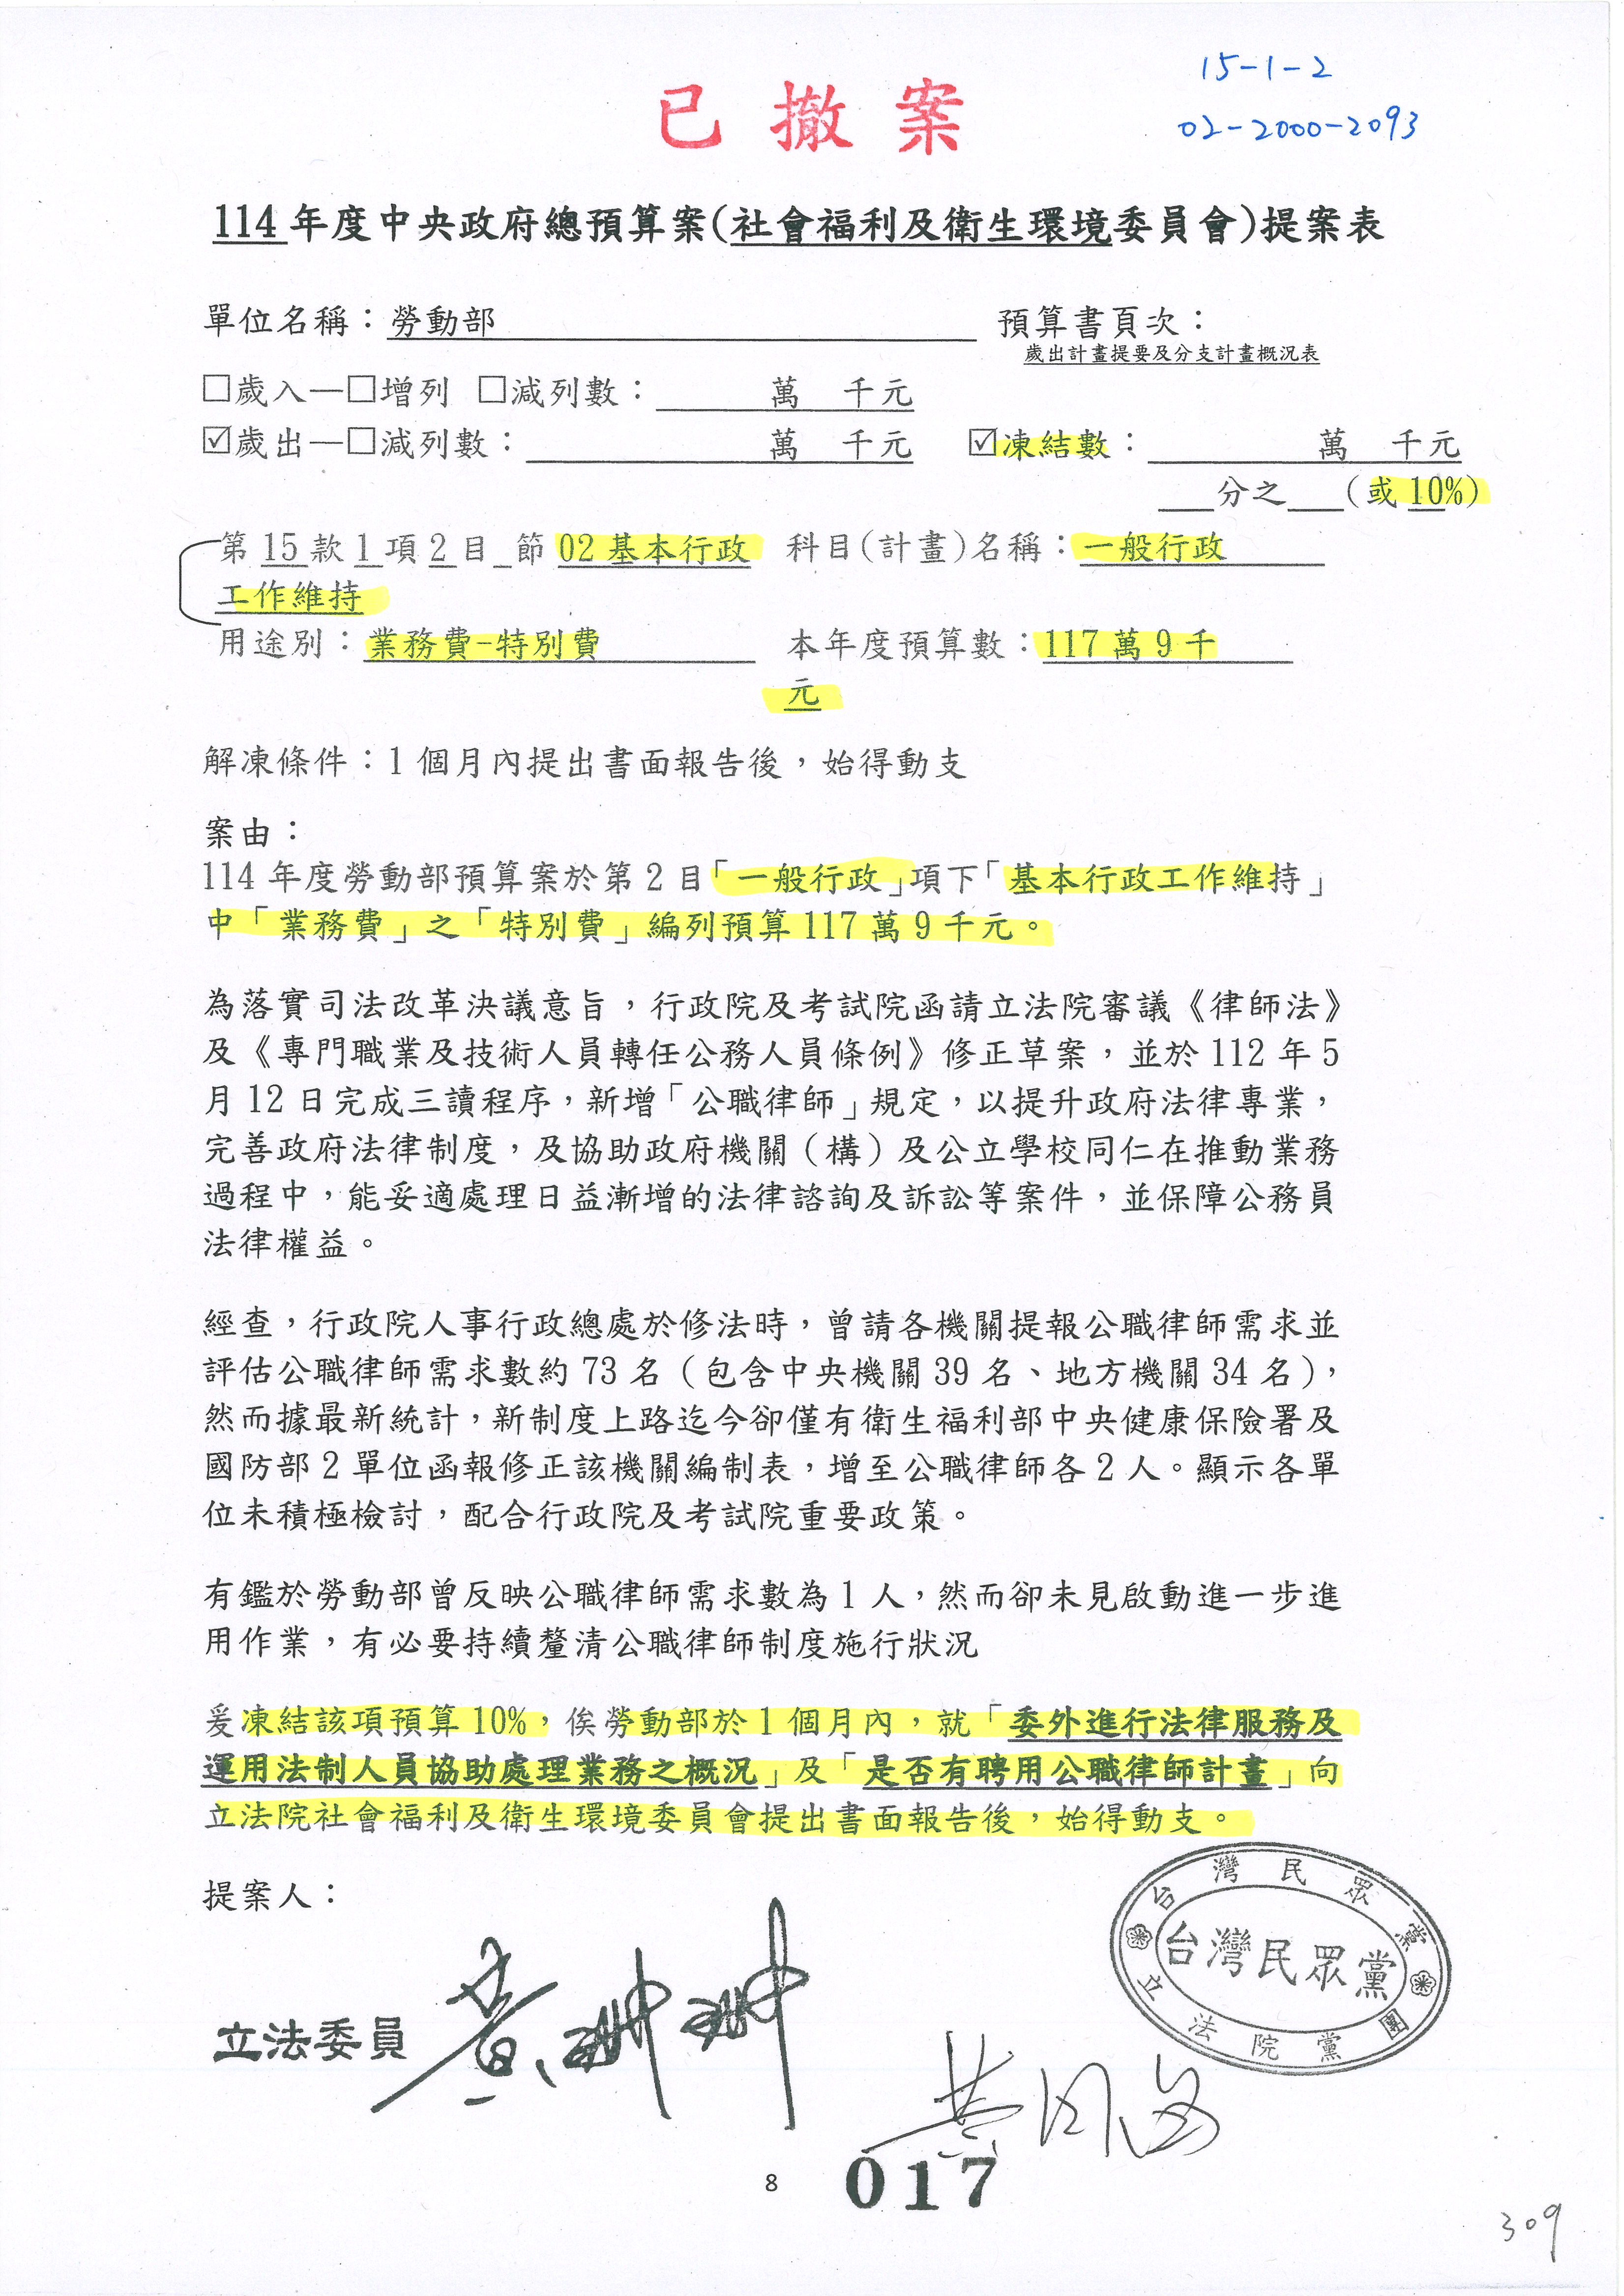 15-1-2
已撤案
02-2000-2093
114年度中央政府總預算案(社會福利及衛生環境委員會)提案表
單位名稱：勞動部 預算書頁次：
歲出計畫提要及分支計畫概況表
□歲入—□增列 □減列數： 萬 千元
☑歲出—□減列數： 萬 千元 ☑凍結數： 萬 千元
___分之___(或 10%)
第 15 款 1 項 2 目 _節 02 基本行政 科目(計畫)名稱：一般行政
工作維持
用途別：業務費-特別費 本年度預算數：117 萬 9 千
元
解凍條件：1 個月內提出書面報告後，始得動支
案由：
114 年度勞動部預算案於第 2 目「一般行政」項下「基本行政工作維持」
中「業務費」之「特別費」編列預算 117 萬 9 千元。
為落實司法改革決議意旨，行政院及考試院函請立法院審議《律師法》
及《專門職業及技術人員轉任公務人員條例》修正草案，並於 112 年 5
月 12 日完成三讀程序，新增「公職律師」規定，以提升政府法律專業，
完善政府法律制度，及協助政府機關（構）及公立學校同仁在推動業務
過程中，能妥適處理日益漸增的法律諮詢及訴訟等案件，並保障公務員
法律權益。
經查，行政院人事行政總處於修法時，曾請各機關提報公職律師需求並
評估公職律師需求數約 73 名（包含中央機關 39 名、地方機關 34 名），
然而據最新統計，新制度上路迄今卻僅有衛生福利部中央健康保險署及
國防部 2 單位函報修正該機關編制表，增至公職律師各 2 人。顯示各單
位未積極檢討，配合行政院及考試院重要政策。
有鑑於勞動部曾反映公職律師需求數為 1 人，然而卻未見啟動進一步進
用作業，有必要持續釐清公職律師制度施行狀況
爰凍結該項預算 10%，俟勞動部於 1 個月內，就「委外進行法律服務及
運用法制人員協助處理業務之概況」及「是否有聘用公職律師計畫」向
立法院社會福利及衛生環境委員會提出書面報告後，始得動支。
提案人：
台灣民眾黨
台灣民眾黨
立法院黨團
立法委員 黃珊珊
黃國昌
8
017
309